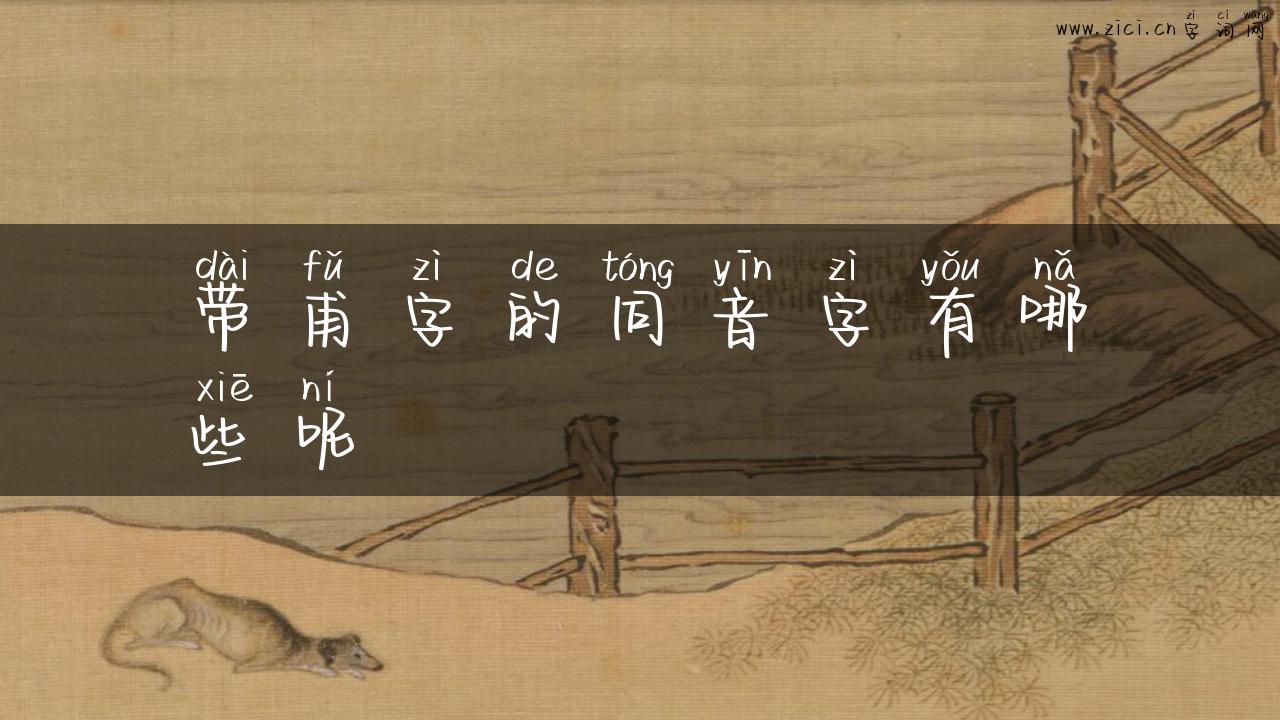 zì cí wǎng
www.zici.cn 字词网
dài fǔ zì de tóng yīn zì yǒu nǎ
带甫字的同音字有哪
xiē ní
些呢